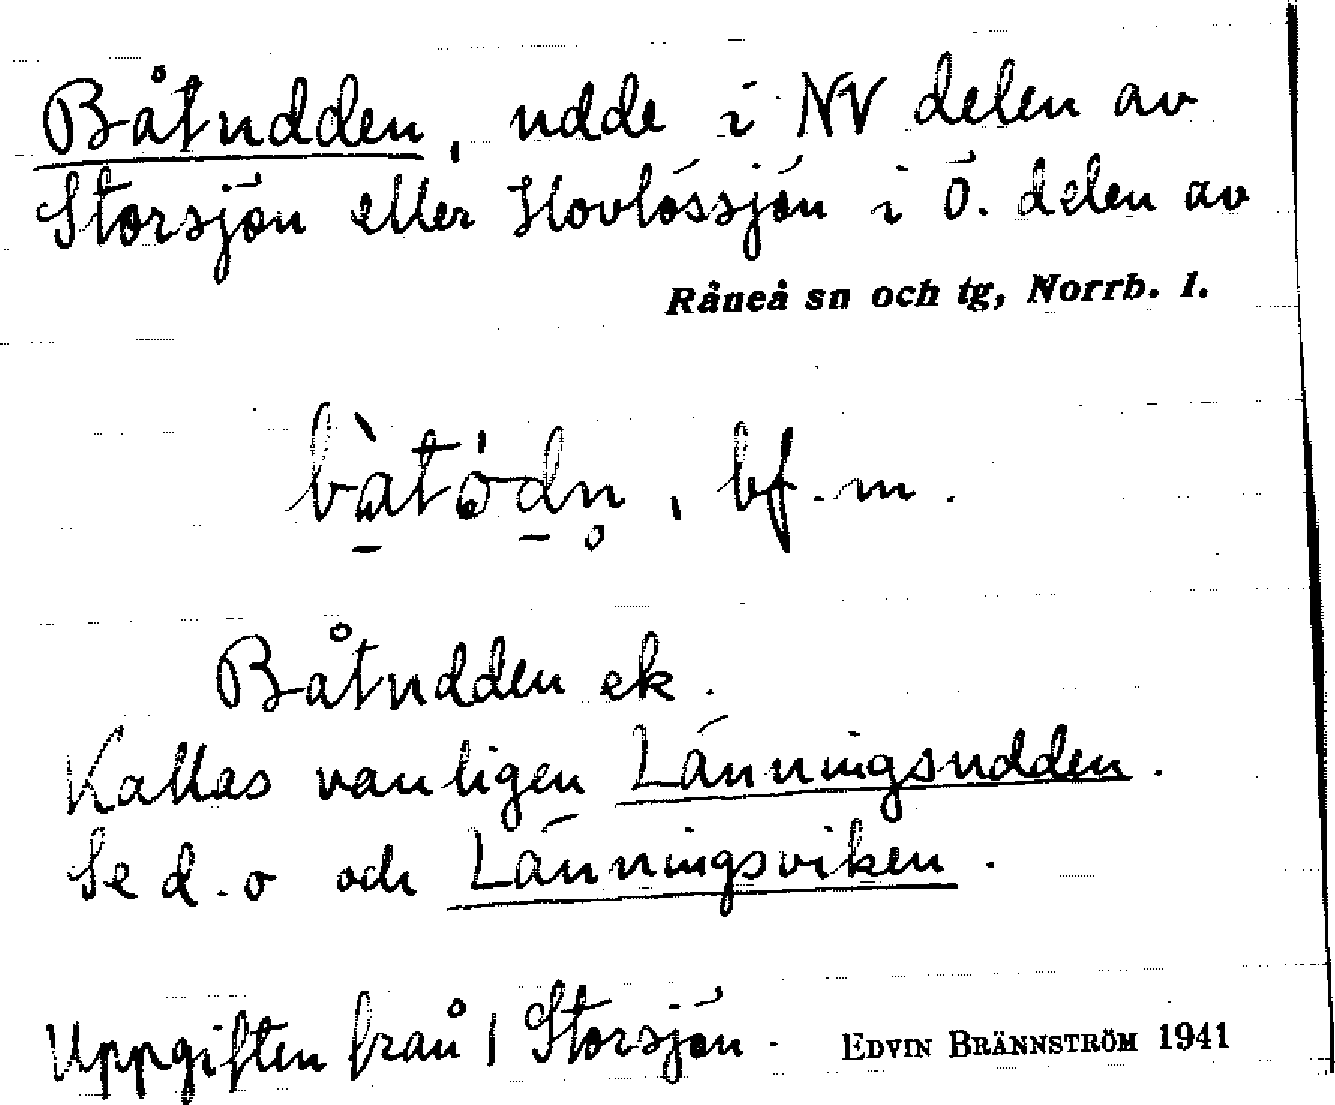 Båtudden, udde i NV delen av
Storsjön eller Hovlössjön i Ö. delen av
Råneå sn och tg, Norrb. l.
bf. m.
Båtudden ek.
Kallas vanligen Länningsudden.
Se d.o och Länningsviken.
Uppgiften från 1 Storsjön.
EDVIN BRÄNNSTRÖM 1941